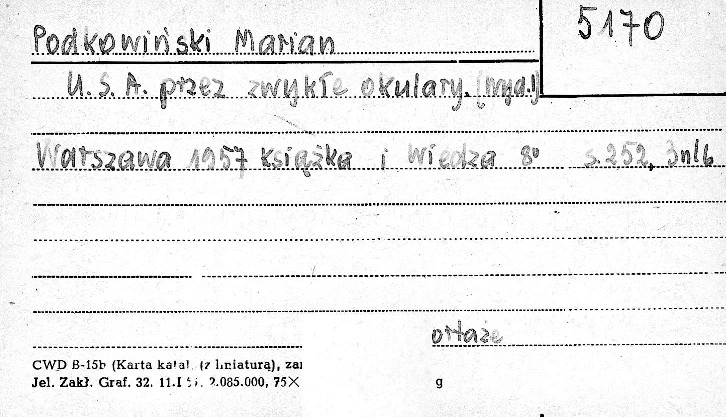 5170
Podkowiński Marian
U.S.A. przez zwykłe okulary. (wyd.1)
Warszawa 1957 Książka i Wiedza 8° s.252, 3nlb
CWD B-15b (Karta katal. (z liniaturą), zał
Jel. Zakł. Graf. 32. 11.I 2.085.000, 75×
g